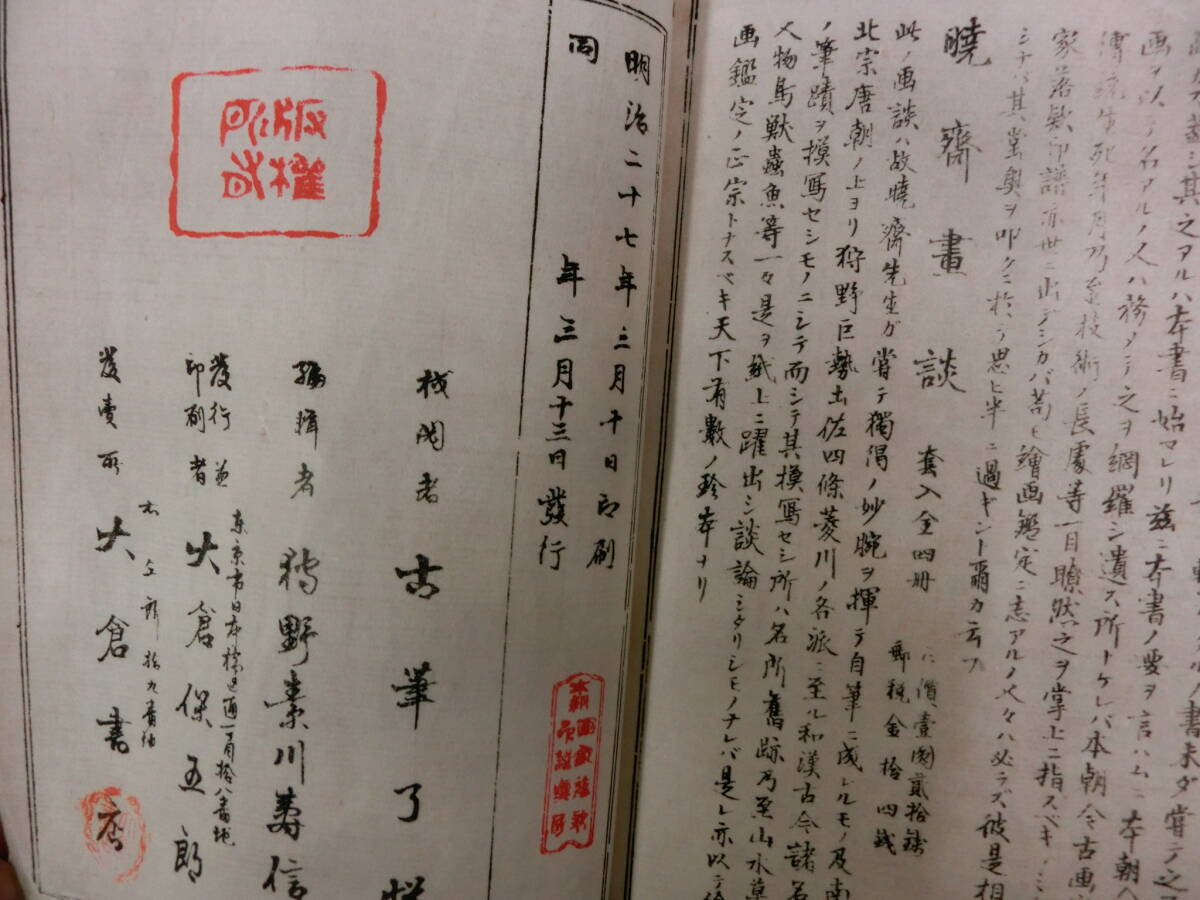 画ヲ以テ名アルノ人ハ務メテ之ヲ網羅シ遺ス所トケレバ本朝今古画
傳統生死年月乃至技術ノ長處等一目瞭然之ヲ掌上ニ指スベキノミ
家落欵印譜亦世ニ出デシカバ苟モ繪画鑑定ニ志アルノ人々ハ必ラズ彼是相
シナバ其堂奥ヲ叩クニ於テ思ヒ半ニ過ギント爾カ云フ
曉齋畫談 套入全四册
価壹圓貳拾錢
郵税金拾四錢
此ノ画談ハ故曉齋先生ガ嘗テ獨得ノ妙腕ヲ揮テ自筆ニ成レルモノ及南
北宗唐朝ノ上ヨリ狩野巨勢土佐四條菱川ノ各派ニ至ル和漢古今諸名
ノ筆蹟ヲ摸寫セシモノニシテ而シテ其摸寫セシ所ハ名所舊跡乃至山水草
人物鳥獸蟲魚等一々是ヲ紙上ニ躍出シ談論シタリシモノナレバ是レ亦以テ
画鑑定ノ正宗トナスベキ天下有數ノ珍本ナリ
明治二十七年三月十日印刷
同年三月十三日發行
版權所有
校閲者 古筆了
編輯者 狩野素川壽信
東京市日本橋區通一丁目拾八番地
發行兼印刷者 大倉保五郎
發賣所 大倉書店